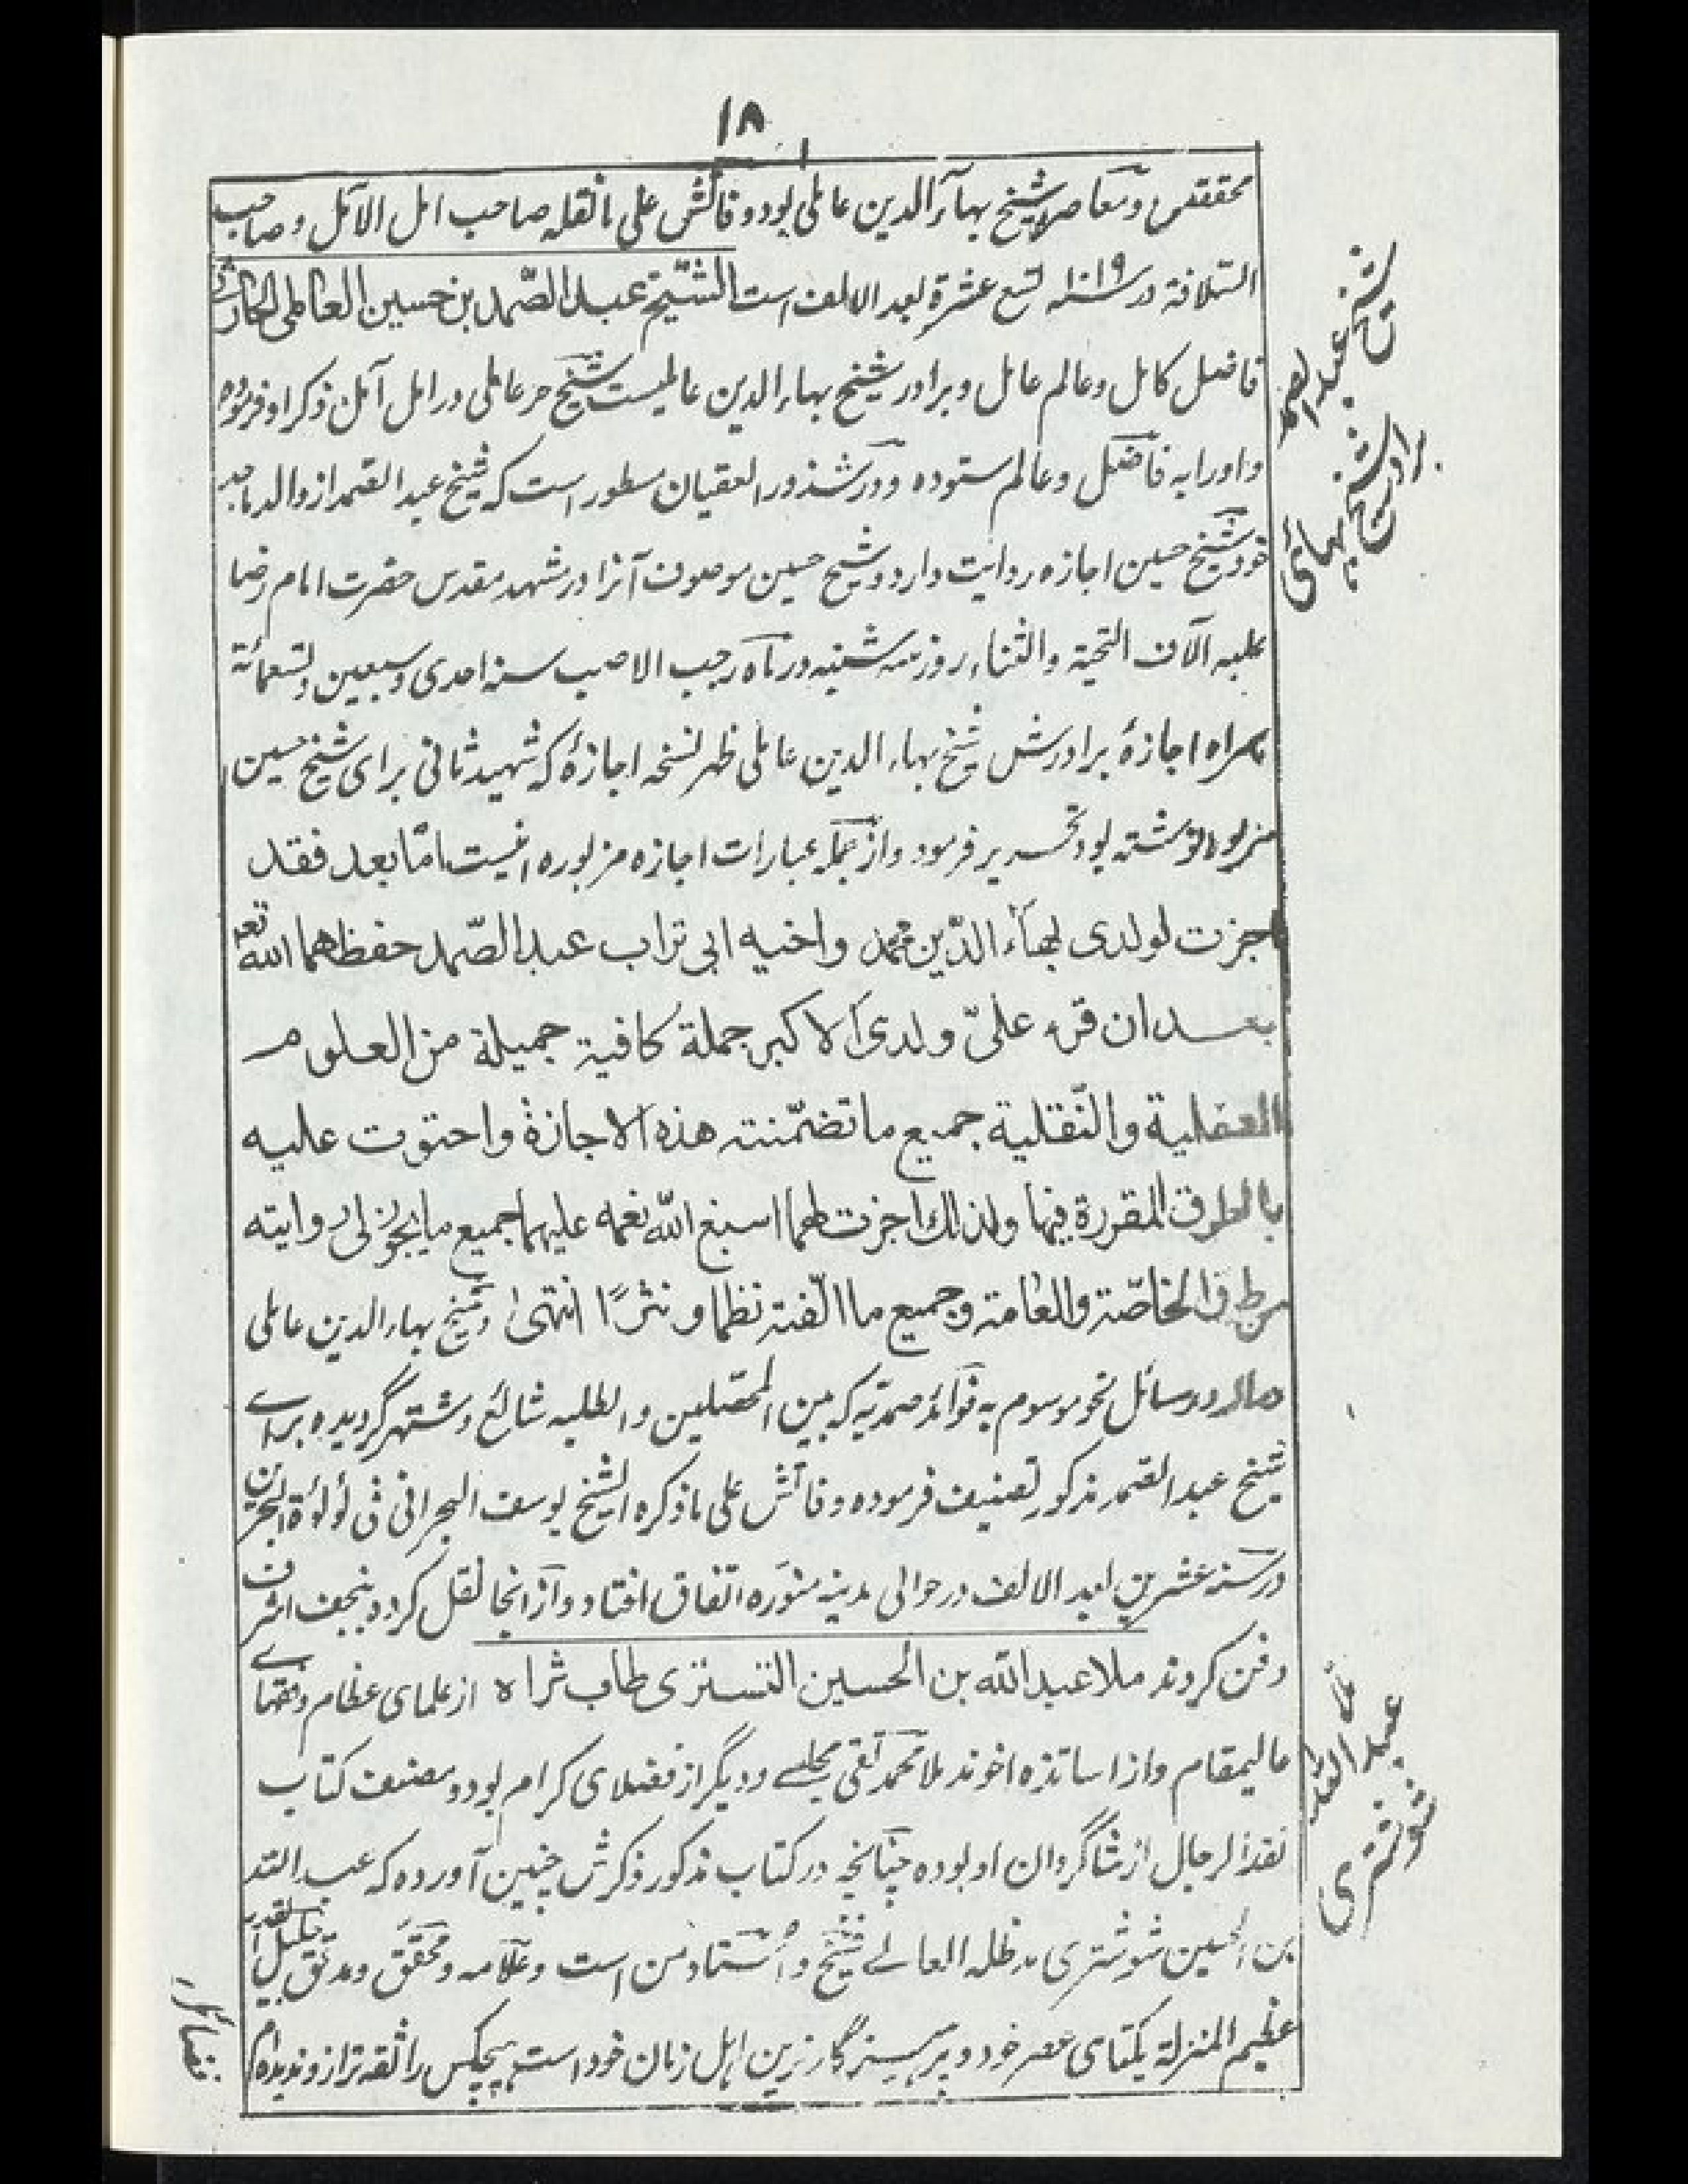 ۱۸
محققین و معاصر شیخ بهاء الدین عاملی بود و وفاتش علی ما نقله صاحب امل الآمل و صاحب
السلافة در ۱۰۱۹ سنه تسع عشرة بعد الالف است الشیخ عبد الصّمد بن حسین العاملی الحارثی
فاضل کامل و عالم عامل و برادر شیخ بهاء الدین عاملیست شیخ حر عاملی در امل آمل ذکر او فرموده
و او را به فاضل و عالم ستوده و در شذور العقیان مسطور است که شیخ عبد الصمد از والد ماجد
خود شیخ حسین اجازه روایت دارد و شیخ حسین موصوف آنرا در مشهد مقدس حضرت امام رضا
علیه آلاف التحیة والثناء روز سه شنبه در ماه رجب الاصب سنه احدی و سبعین و تسعمائة
همراه اجازهٔ برادرش شیخ بهاء الدین عاملی ظهر نسخه اجازهٔ که شهید ثانی برای شیخ حسین
مزبور نوشته بود تحریر فرمود و از جمله عبارات اجازه مزبوره اینست امّا بعد فقد
اجزت لولدی بهاء الدّین محمد و اخیه ابی تراب عبد الصّمد حفظهما الله تعه
بعد ان قرء علیّ ولدی الاکبر جملة کافیة جمیلة من العلوم
العقلیة والنّقلیة جمیع ما تضمّنته هذه الاجازة واحتوت علیه
بالطرق المقررة فیها ولذلك اجزت لهما اسبغ الله نعمه علیهما جمیع ما یجوز لی روایته
من طرق الخاصّة والعامة وجمیع ما الّفته نظما و نثرًا انتهیٰ و شیخ بهاء الدین عاملی
رساله در مسائل نحو موسوم به فوائد صمدیّه که بین المحصلین والطلبه شائع و مشتهر گردیده برای
شیخ عبد الصمد مذکور تصنیف فرموده وفاتش علی ما ذکره الشیخ یوسف البحرانی فی لؤلؤة البحرین
در سنه عشرین بعد الالف در حوالی مدینه منوّره اتفاق افتاد و از انجا نقل کرده بنجف اشرف
دفن کردند ملا عبد الله بن الحسین التستری طاب ثراه از علمای عظام و فقهای
عالیمقام و از اساتذه اخوند ملا محمد تقی مجلسی و دیگر از فضلای کرام بود و مصنف کتاب
نقد الرجال از شاگردان او بوده چنانچه در کتاب مذکور ذکرش چنین آورده که عبد الله
بن الحسین شوشتری مد ظله العالی شیخ و استاد من است و علامه و محقق و مدقق جلیل القدر
عظیم المنزلة یکتای عصر خود و پرهیزگارترین اهل زمان خود است هیچکس را ثقه تر از و ندیده‌ام
شیخ عبد الصمد
برادر شیخ بهائی
ملا
عبد الله
شوشتری